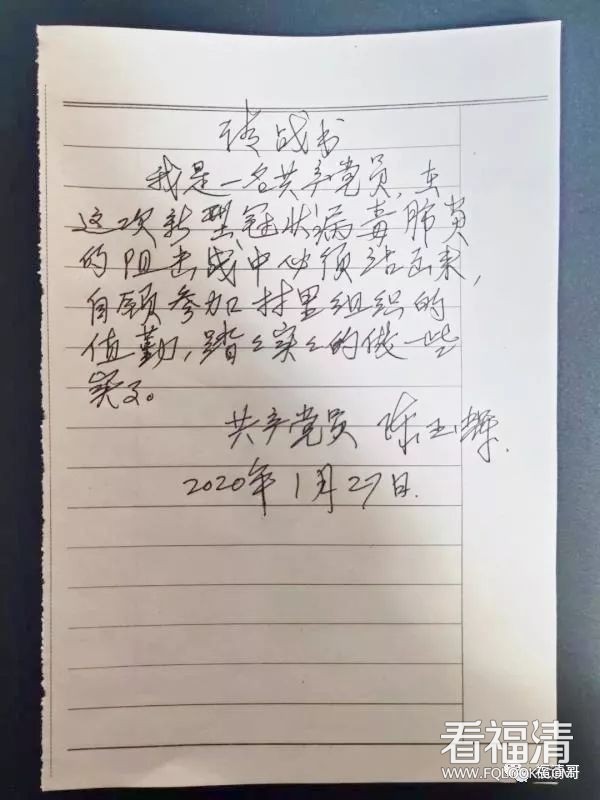 请战书
我是一名共产党员,在
这次新型冠状病毒肺炎
的阻击战中必须站出来,
自愿参加村里组织的
值勤,踏々实々的做一些
实事。
共产党员 陈玉辉.
2020年1月27日.
看福清
福清哥
WWW.FQLOOK.COM